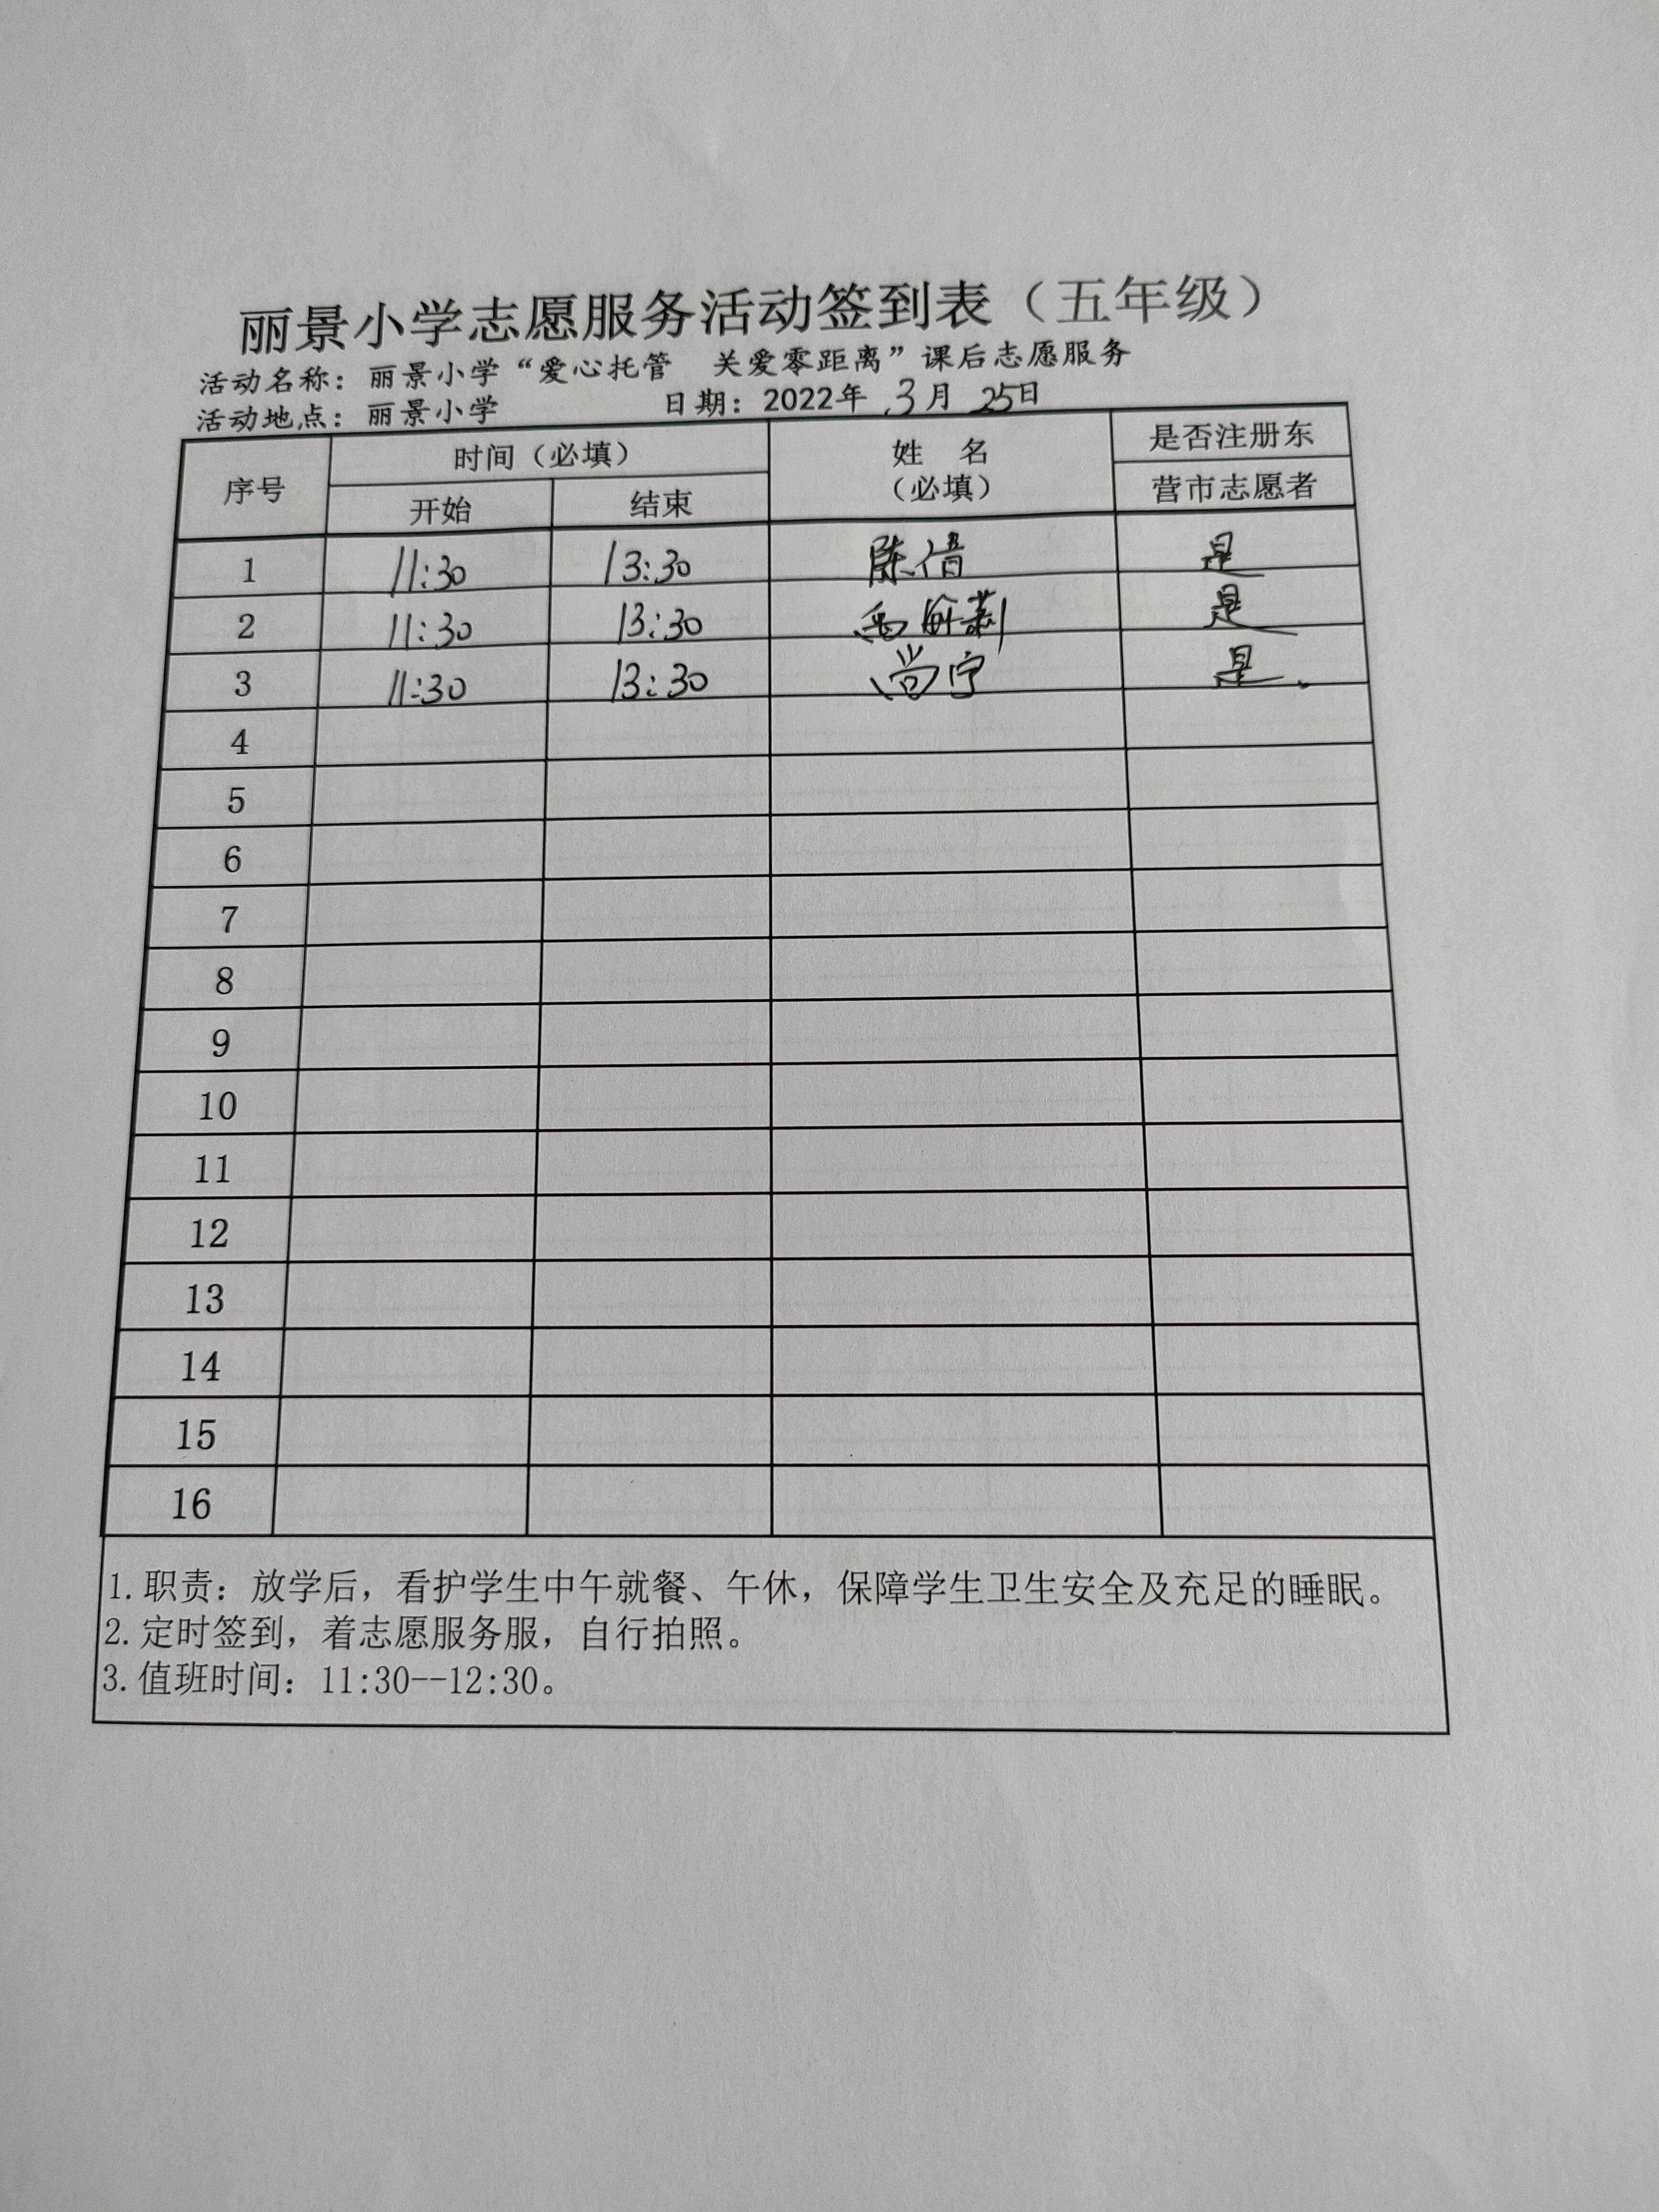 丽景小学志愿服务活动签到表（五年级）
活动名称：丽景小学“爱心托管 关爱零距离”课后志愿服务
活动地点：丽景小学 日期：2022年 3月 25日
序号 时间（必填） 姓 名（必填） 是否注册东营市志愿者
开始 结束
1 11:30 13:30 陈倩 是
2 11:30 13:30 是
3 11:30 13:30 尚宁 是.
4
5
6
7
8
9
10
11
12
13
14
15
16
1.职责：放学后，看护学生中午就餐、午休，保障学生卫生安全及充足的睡眠。
2.定时签到，着志愿服务服，自行拍照。
3.值班时间：11:30--12:30。